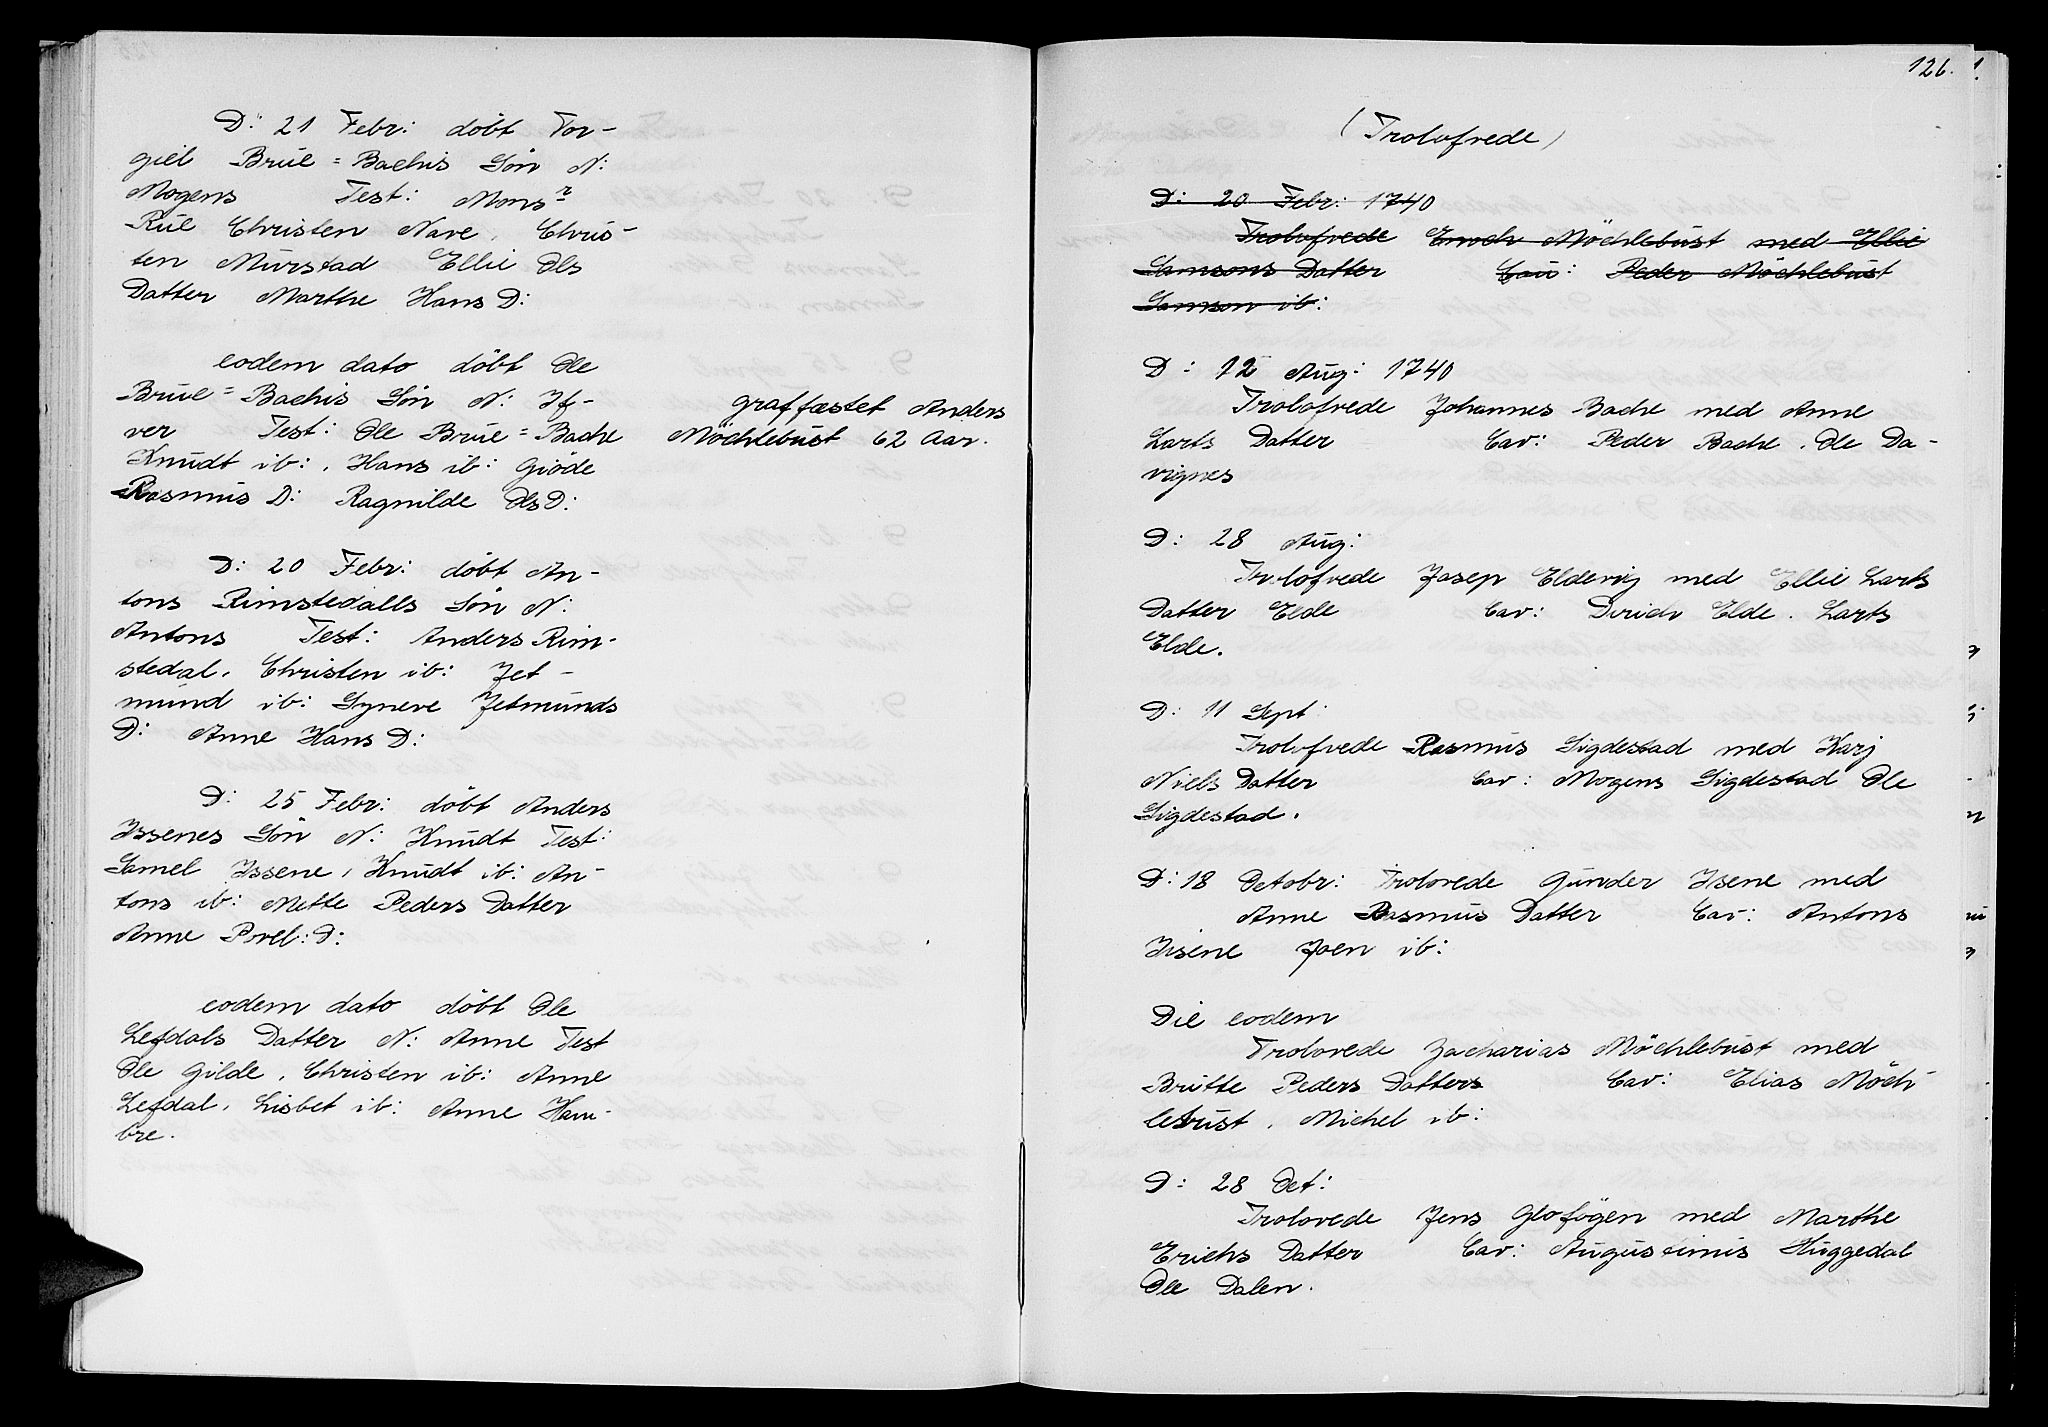 D: 21 Febr: döbt Tor-
giel Brue=Bachis Sön N:
Mogens Test: Monsr
Rue Christen Nave, Chris-
ten Murstad Ellie Ols
Datter Marthe Hans D:
eodem dato döbt Ole
Brue=Bachis Sön N: If-
ver Test: Ole Brue=Bache
Knudt ib:, Hans ib: Giöde
Rasmus D: Ragnilde Ols D:
graffæstet Anders
Möchlebust 62 Aar.
D: 20 Febr: döbt An-
tons Rimstedalls Sön N:
Antons Test: Anders Rim-
stedal, Christen ib: Jet-
mund ib: Syneve Jetmunds
D: Anne Hans D:
D: 25 Febr: döbt Anders
Issenes Sön N: Knudt Test:
Samel Issene, Knudt ib: An-
tons ib: Mette Peders Datter
Anne Povel: D:
eodem dato döbt Ole
Lefdals Datter N: Anne Test
Ole Gilde, Christen ib: Anne
Lefdal, Lisbet ib: Anne Ham-
bre.
126.
(Trolofvede)
D: 20 Febr: 1740
Trolofvede Enoch Möchlebust med Ellie
Samsons Datter Cav: Peder Möchlebust
Samson ib:
D: 12 Aug: 1740
Trolofvede Johannes Bache med Anne
Larts Datter Cav: Peder Bache, Ole Da-
vignes
D: 28 Aug:
Trolofvede Jasep Eldevij med Ellie Larts
Datter Elde Cav: Dirich Elde. Larts
Elde.
D: 11 Sept:
Trolofvede Rasmus Sigdestad med Karj
Niels Datter Cav: Mogens Sigdestad Ole
Sigdestad.
D: 18 Octobr: Trolovede Gunder Isene med
Anne Rasmus Datter Cav: Antons
Isene Joen ib:
Die eodem
Trolovede Zacharias Möchlebust med
Britte Peders Datters Cav: Elias Möch-
lebust, Michel ib:
D: 28 Oct:
Trolovede Jens Glofögen med Marthe
Erichs Datter Cav: Augustinus Huggedal
Ole Dalen.